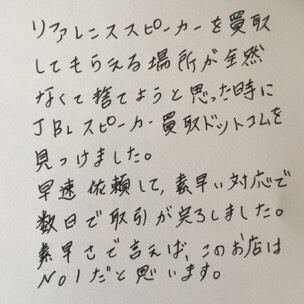 リファレンススピーカーを買取
してもらえる場所が全然
なくて捨てようと思った時に
JBLスピーカー買取ドットコムを
見つけました。
早速依頼して、素早い対応で
数日で取引が完了しました。
素早さで言えば、このお店は
NO1だと思います。